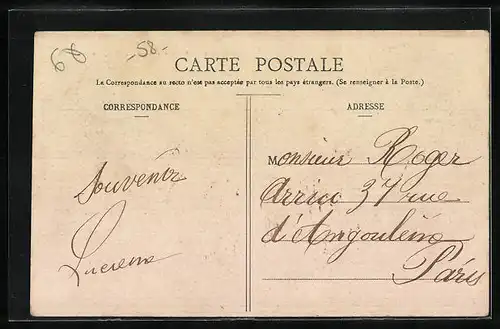 68 -58-
CARTE POSTALE
La Correspondance au recto n'est pas acceptée par tous les pays étrangers. (Se renseigner à la Poste.)
CORRESPONDANCE
ADRESSE
Souvenir
Monsieur Roger
37 rue
d'Angoulême
Paris